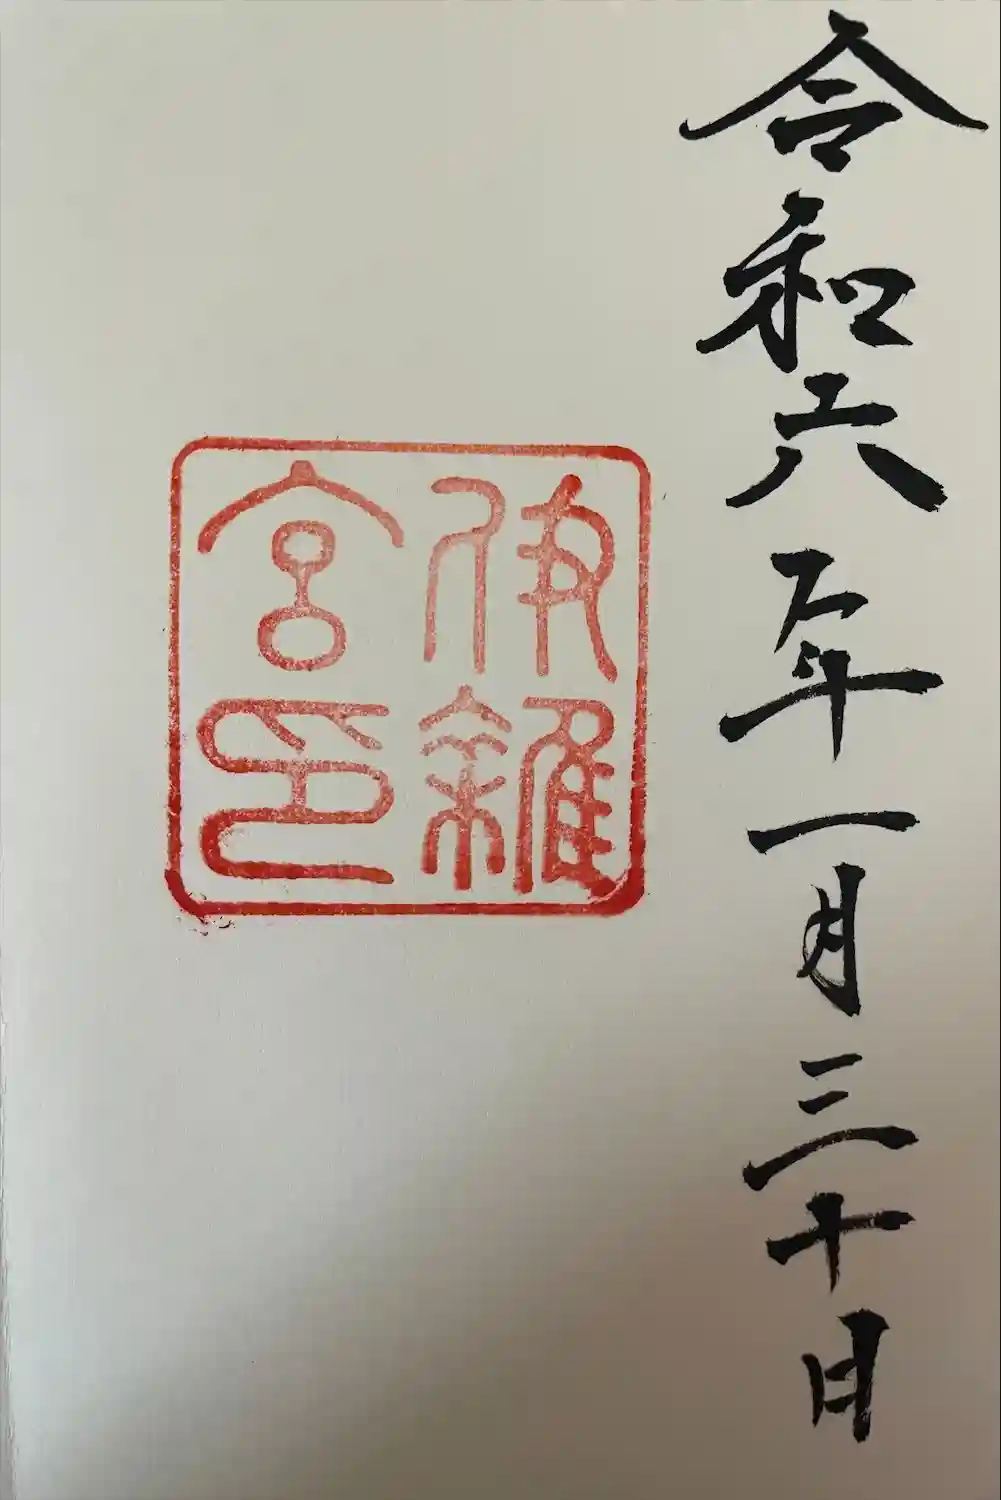 令和六年一月三十日
伊雜
宮印